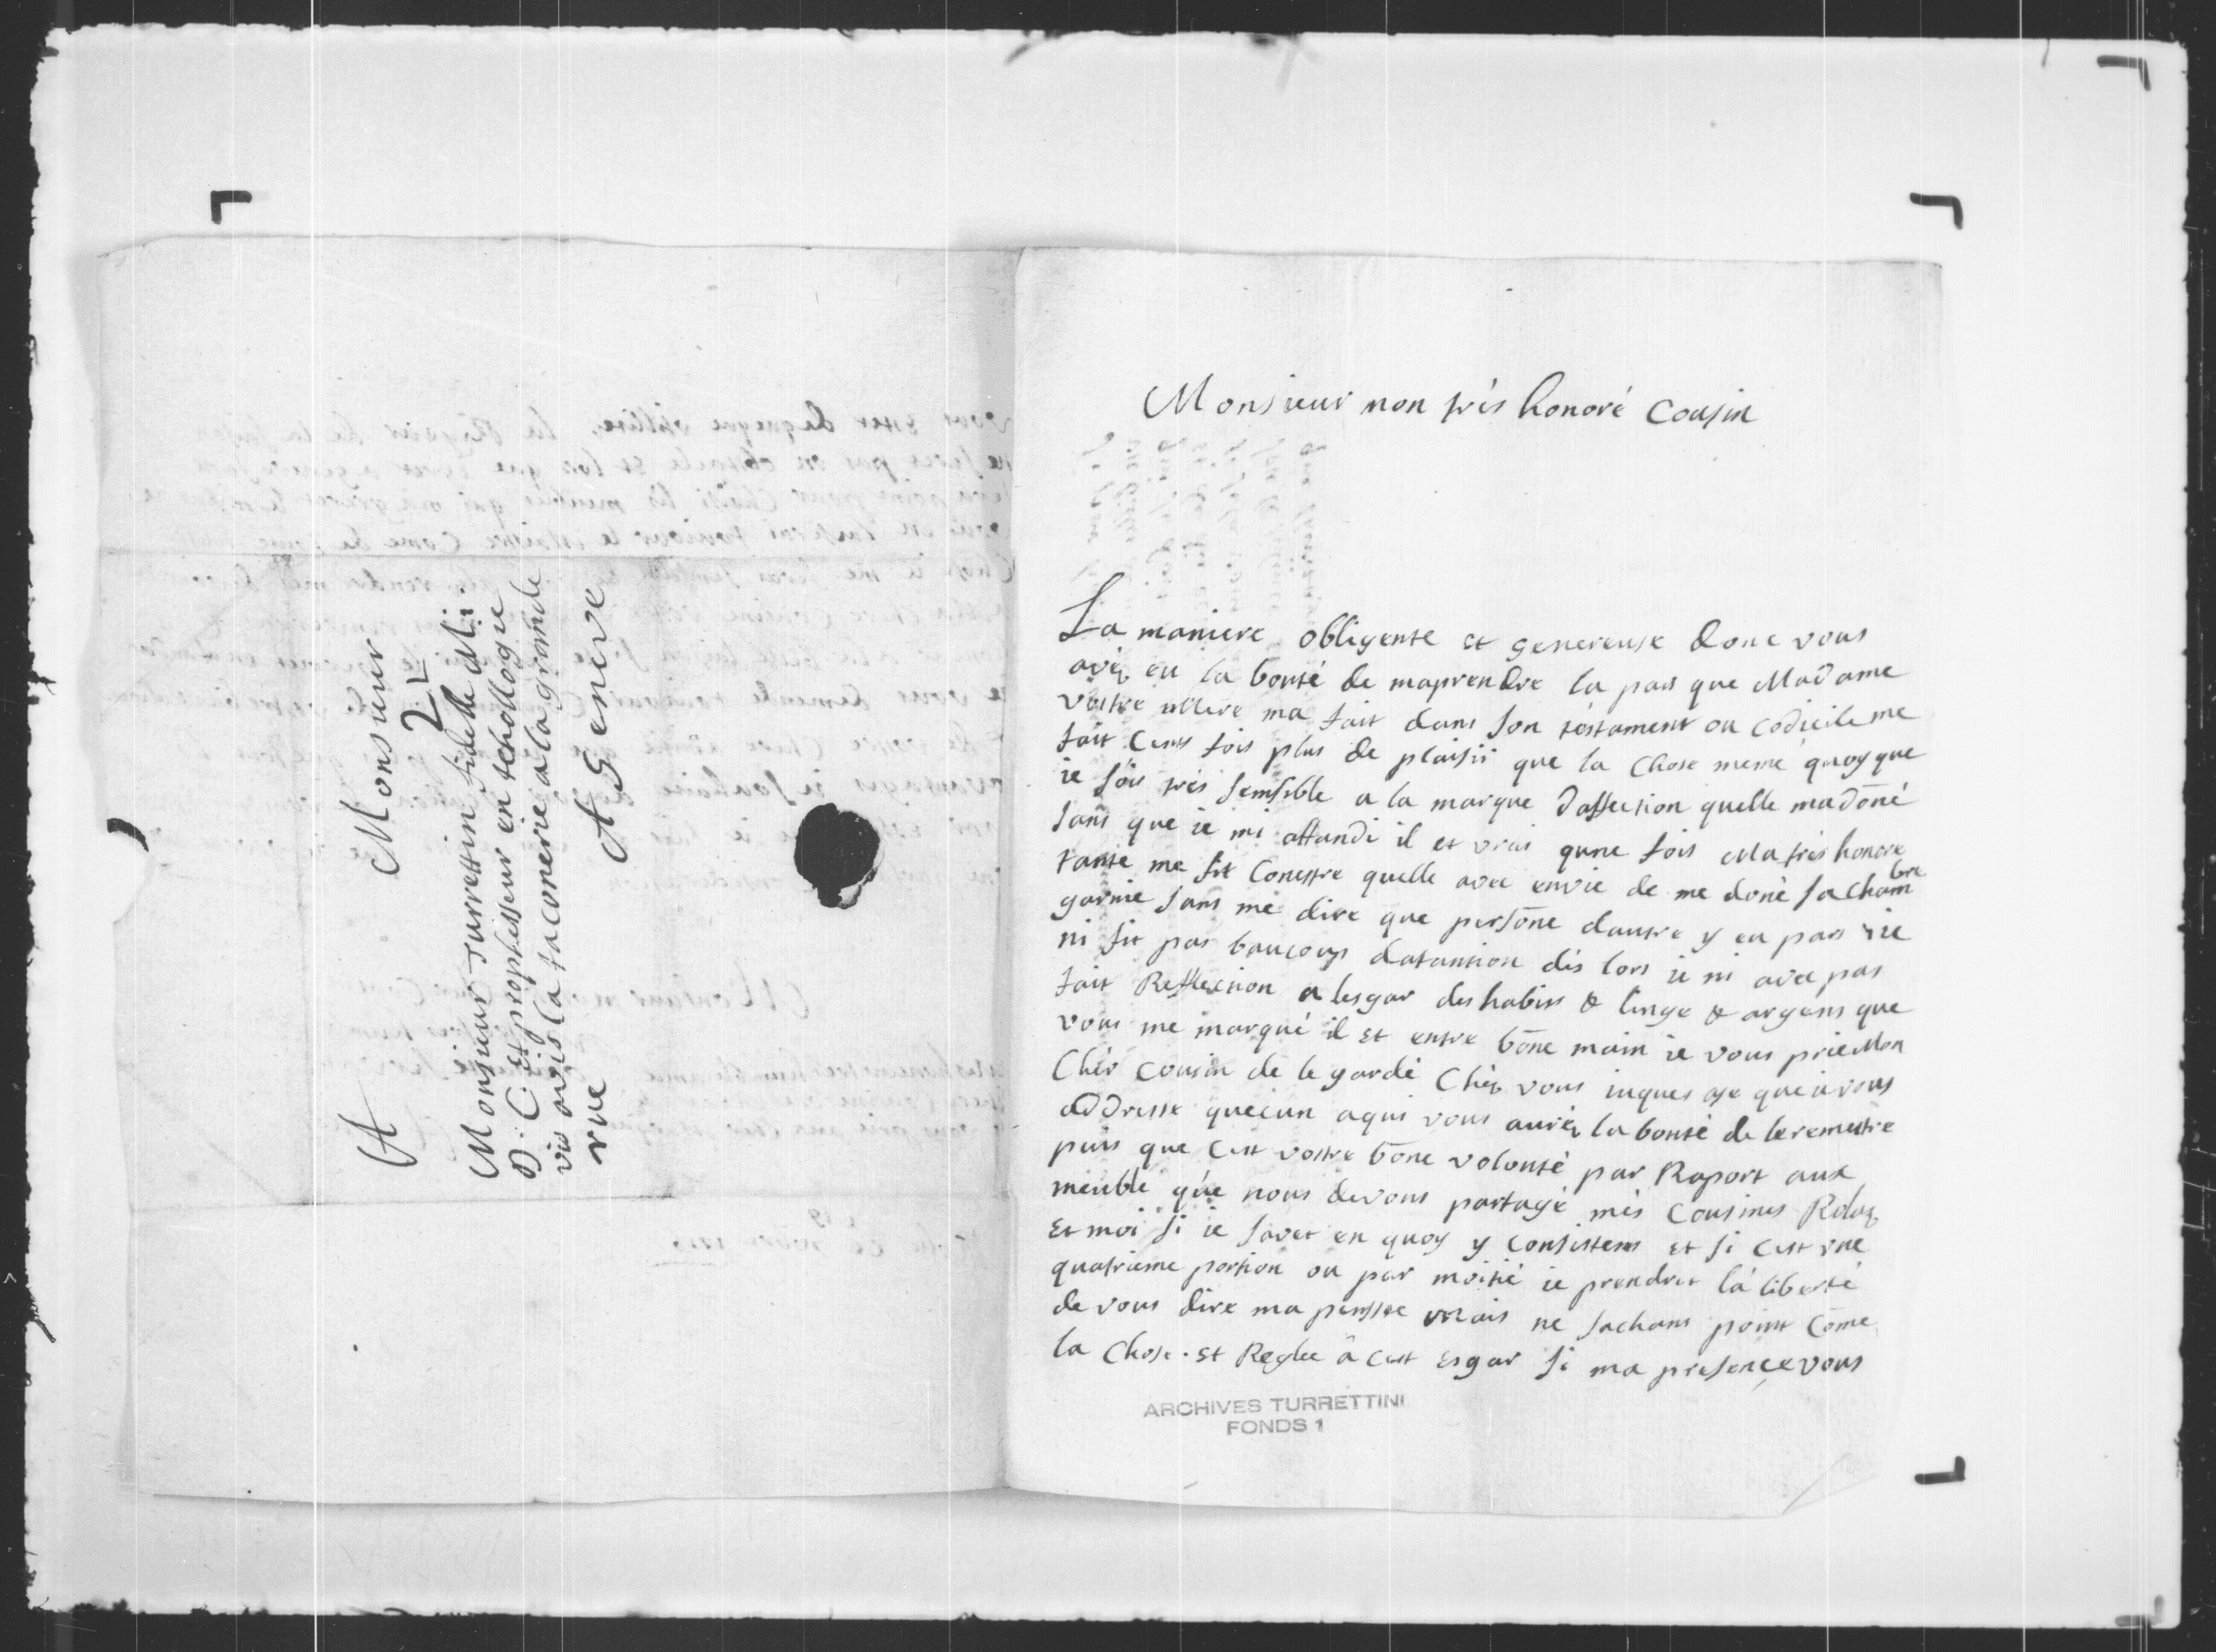 A Monsieur
2
Monsieur Turrettin fidelle M:
D: C: et prophesseur en tehollogie
vis avis la taconerie a la grande
rue A Geneve
Monsieur mon très honoré Cousin
La maniere obligente et genereuse donc vous
avéz eu la bonté de maprendre la pars que Madame
vostre Mere ma fait dans son téstament ou codicile me
fait Cens fois plus de plaisii que la Chose meme quoyque
ie sois très sensible a la marque daffection quelle ma dōné
sans que ie mi attandi il et vrai qune fois Ma très honore
tante me fit Conestre quelle avec envie de me doné sa Chambre
garnie sans me dire que persōne dautre y eu pars ie
ni fit pas baucoup datantion dés lors ie ni avec pas
fait Reflexion a lesgar des habits & linge & argens que
vous me marqué il et entre bōne main ie vous prie Mon
Chér Cousin de le gardé Chéz vous iuques a se que ie vous
addresse quecun a qui vous auréz la bonté de le remettre
puis que Cest vostre bōne volonté par Raport aux
meuble que nous devons partagé més Cousines Rolaz
Et moi si ie savet en quoy y Consistens et si Cest une
quatrieme portion ou par moitié ie prendret la liberté
de vous dire ma pensee mais ne sachans point Cōme
la Chose et Reglee a Cest Esgar si ma presence vous
ARCHIVES TURRETTINI
FONDS 1